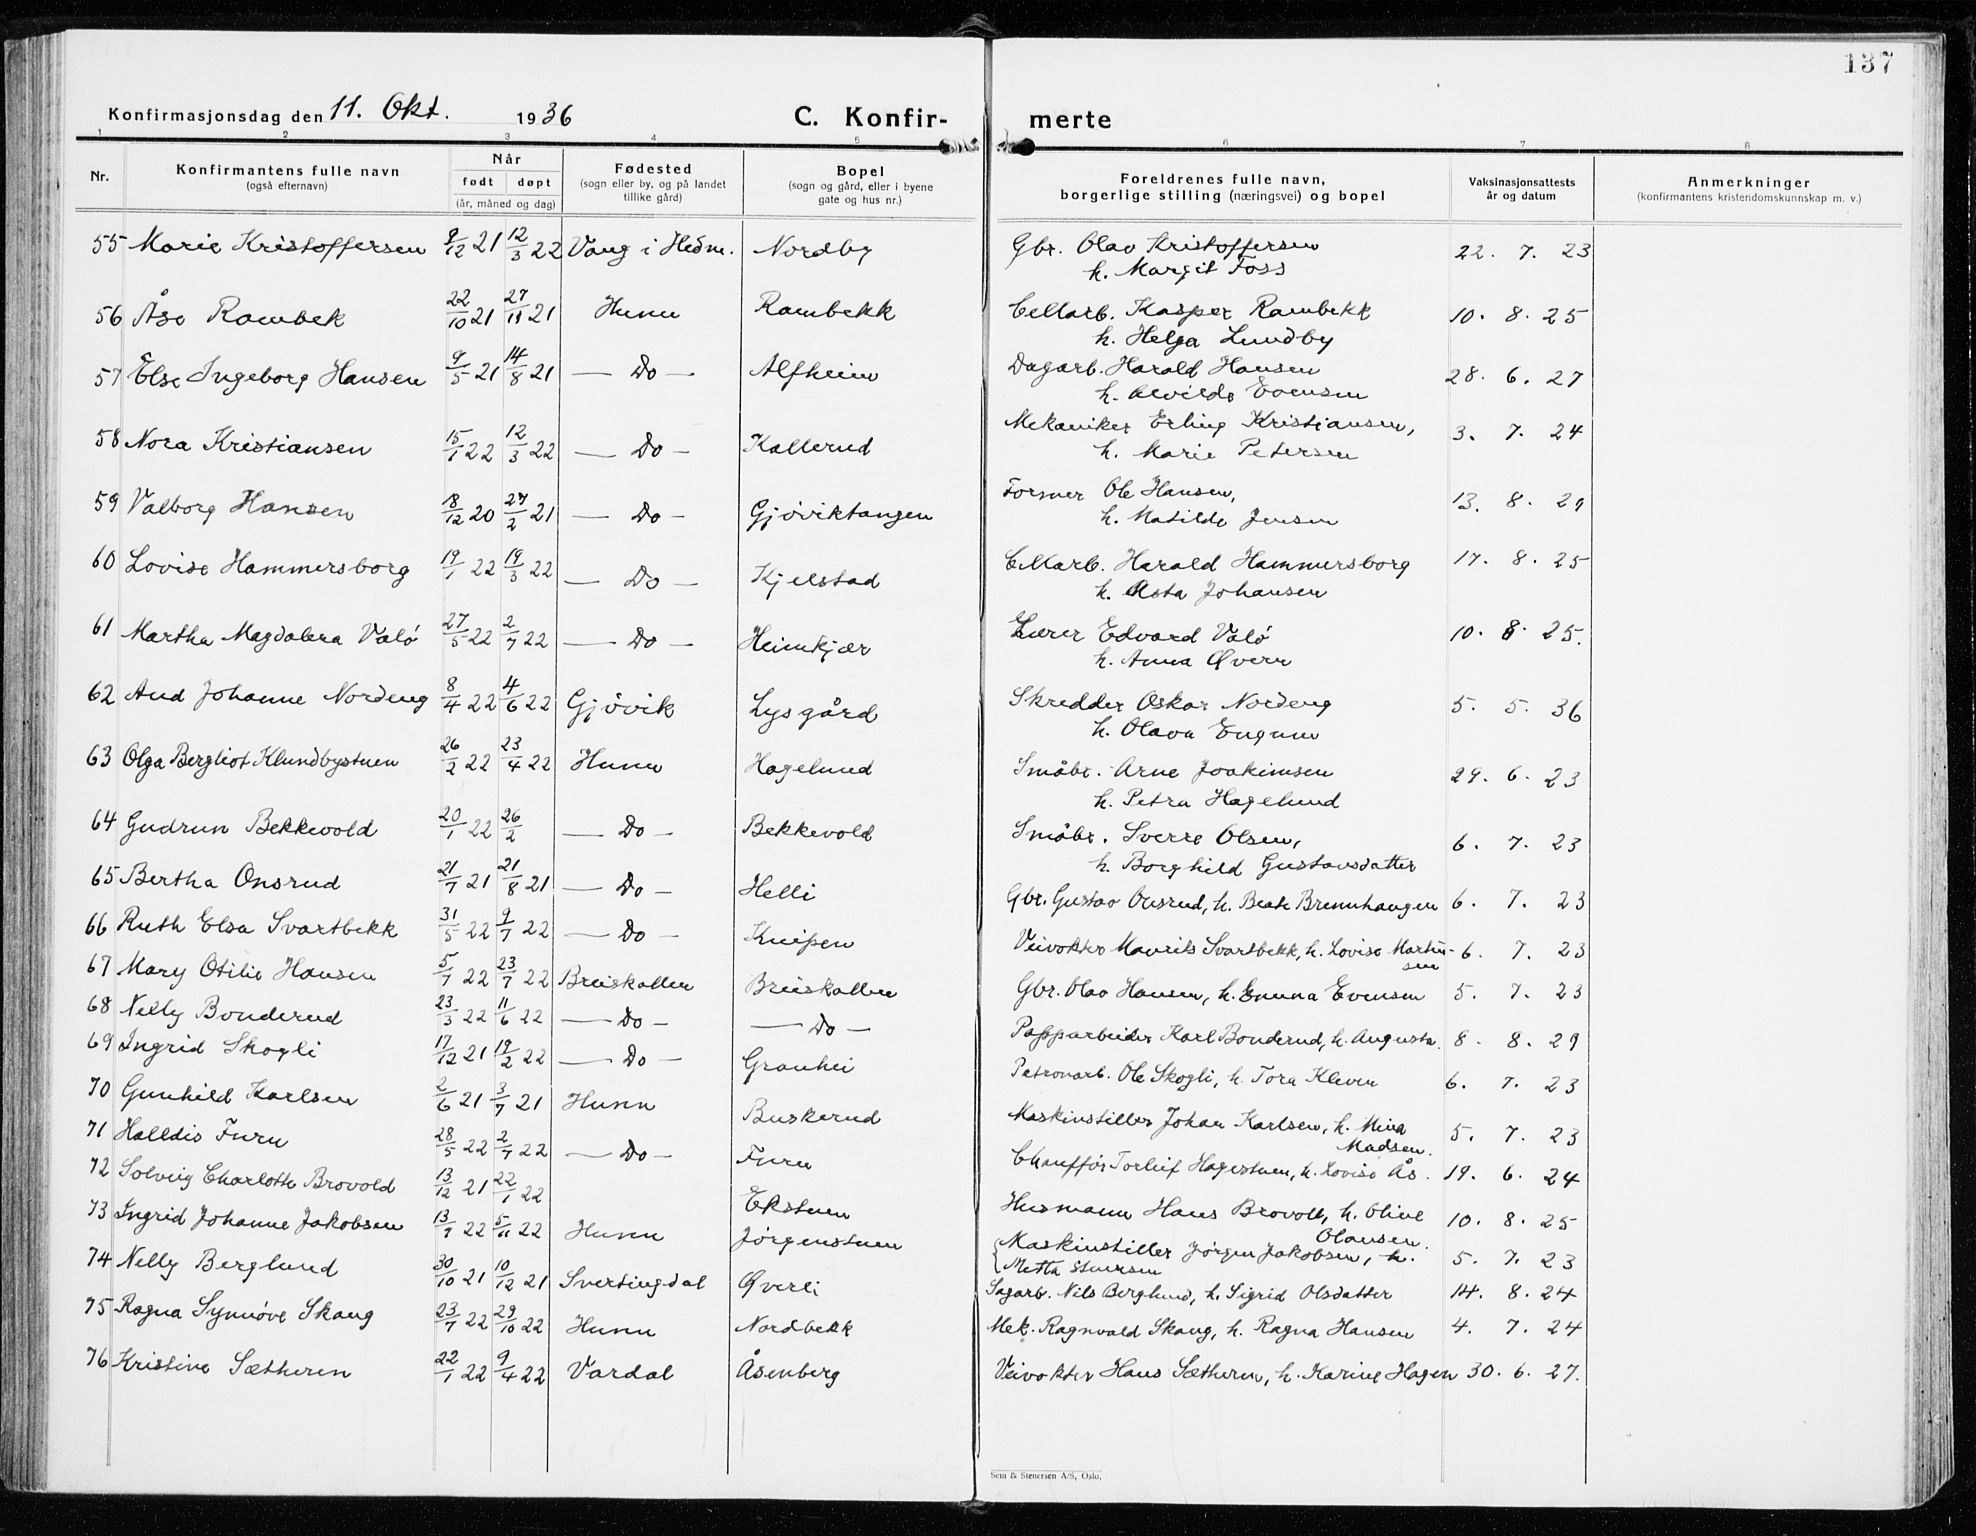 137
Konfirmasjonsdag den 11. Okt. 1936 C. Konfir- merte
1 2 3 4 5 6 7 8
Nr. Konfirmantens fulle navn (også efternavn) Når født døpt (år, måned og dag) Fødested (sogn eller by, og på landet tillike gård) Bopel (sogn og gård, eller i byene gate og hus nr.) Foreldrenes fulle navn, borgerlige stilling (næringsvei) og bopel Vaksinasjonsattests år og datum Anmerkninger (konfirmantens kristendomskunnskap m. v.)
55 Marie Kristoffersen 9/12 21 12/3 22 Vang i Hedm. Nordby Gbr. Olav Kristoffersen 22. 7. 23
h. Margit Foss
56 Åse Rambek 22/10 21 27/11 21 Hunn Rambekk Cellarb. Kasper Rambekk 10. 8. 25
h. Helga Lundby
57 Else Ingeborg Hansen 9/5 21 14/8 21 — Do — Alfheim Dagarb. Harald Hansen 28. 6. 27
h. Alvilde Evensen
58 Nora Kristiansen 15/1 22 12/3 22 — Do — Kallerud Mekaniker Erling Kristiansen, 3. 7. 24
h. Marie Petersen
59 Valborg Hansen 18/12 20 27/2 21 — Do — Gjøviktangen Former Ole Hansen, 13. 8. 29
h. Matilde Jensen
60 Lovise Hammersborg 19/1 22 19/3 22 — Do — Kjelstad Cellarb. Harald Hammersborg 17. 8. 25
h. Asta Johansen
61 Martha Magdalena Valø 27/5 22 2/7 22 — Do — Heimkjær Lærer Edvard Valø 10. 8. 25.
h. Anna Øvern
62 Aud Johanne Nordeng 8/4 22 4/6 22 Gjøvik Lysgård Skredder Oskar Nordeng 5. 5. 36
h. Olava Engum
63 Olga Bergliot Klundbystuen 26/2 22 23/4 22 Hunn Hagelund Småbr. Arne Joakimsen 29. 6. 23
h. Petra Hagelund
64 Gudrun Bekkevold 20/1 22 26/2 — Do — Bekkevold Småbr. Sverre Olsen, 6. 7. 23
h. Borghild Gustavsdatter
65 Bertha Onsrud 21/7 21 21/8 21 — Do — Helli Gbr. Gustav Onsrud, h. Beate Brennhaugen 6. 7. 23
66 Ruth Elsa Svartbekk 31/5 22 9/7 22 — Do — Knipen Veivokter Maurits Svartbekk, h. Lovise Martin- 6. 7. 23
sen
67 Mary Otilie Hansen 5/7 22 23/7 22 Breiskallen Breiskallen Gbr. Olav Hansen, h. Emma Evensen 5. 7. 23
68 Nelly Bonderud 23/3 22 11/6 22 — Do — — Do — Papparbeider Karl Bonderud, h. Augusta. 8. 8. 29
69 Ingrid Skogli 17/12 21 19/2 22 — Do — Granhei Petronarb. Ole Skogli, h. Tora Kleven 6. 7. 23
70 Gunhild Karlsen 2/6 21 3/7 21 Hunn Buskerud Maskinstiller Johan Karlsen, h. Mina 5. 7. 23
Madsen.
71 Halldis Furu 28/5 22 2/7 22 — Do — Furu Chauffør Torleif Hagestuen, h. Lovise Ås. 19. 6. 24
72 Solveig Charlotte Brovold 13/12 21 22/1 22 Ekstuen Husmann Hans Brovoll, h. Olive 10. 8. 25
Olausen.
73 Ingrid Johanne Jakobsen 13/9 22 5/11 22 Hunn Jørgenstuen Maskinstiller Jørgen Jakobsen, h. 5. 7. 23
Metta
74 Nelly Berglund 30/10 21 10/12 21 Svertingdal Øverli Sagarb. Nils Berglund, h. Sigrid Olsdatter 14. 8. 24
75 Ragna Synnøve Skaug 23/7 22 29/10 22 Hunn Nordbekk Mek. Ragnvald Skaug, h. Ragna Hansen 4. 7. 24
76 Kristine Sætheren 22/1 22 9/4 22 Vardal Åsenberg Veivokter Hans Sætheren, h. Karine Hagen 30. 6. 27.
Sem & Stenersen A/S, Oslo.